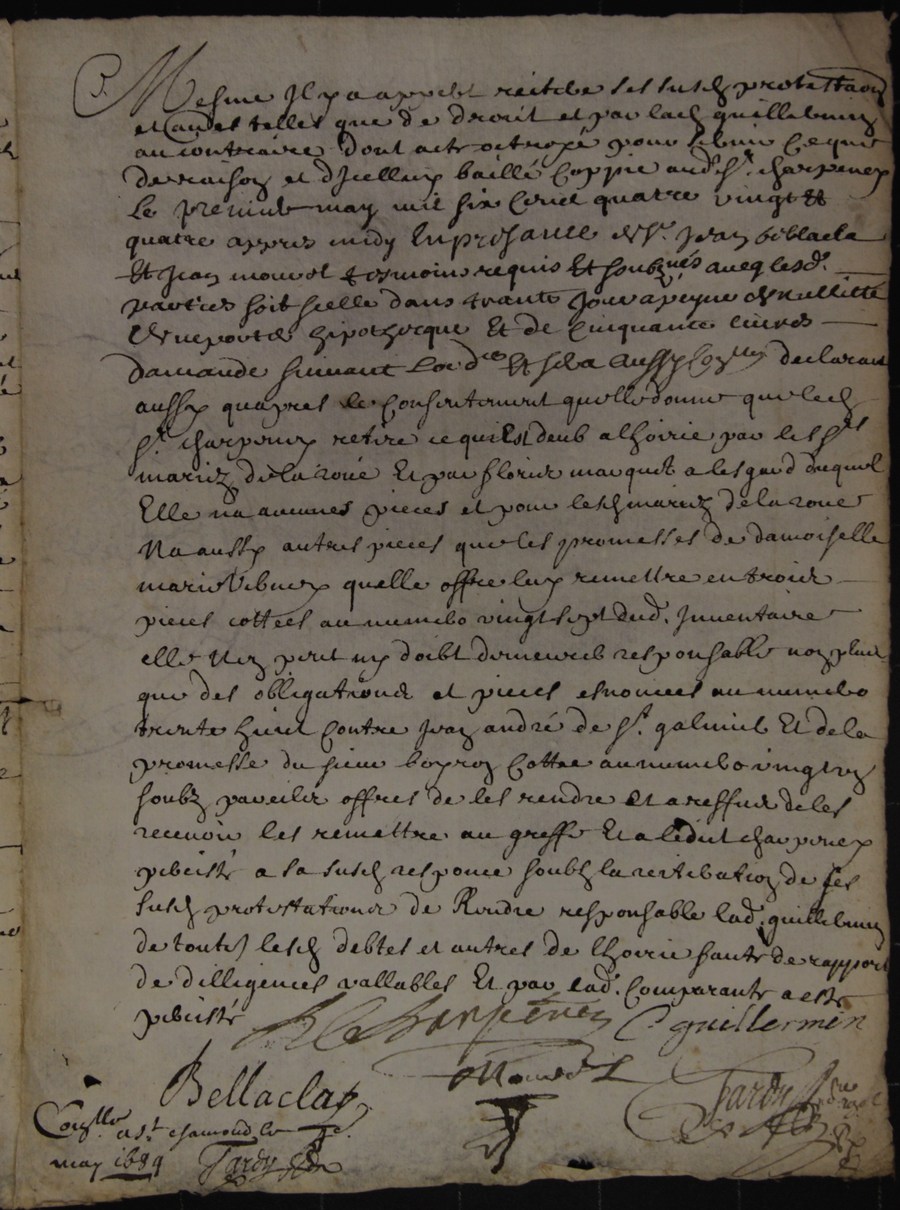 Mesme Il y a appelé réitéré ses susd protestaons
et autres telles que de droit et par lad guillermin
au contraire dont acte octroyé pour servir ce que
de raison et d'jcelluy baillé coppie aud Sr. charpeney
le premier may mil six cend quatre vingtz
quatre appres midy En presance de Sr. Jean Bellacla
Et Jean mouret tesmoins requis Et soubznés aveq lesd.
parties soit scellé dans trante Jour a peyne de nullitté
de ne porter hipothecque Et de Cinquante livres
damande suivant Lord.ce Et sera Aussy declarant
aussy quapres le Consentement quelle donne que led
Sr. charpeney retire ce qui Est deub a lhoirie par les srs
mariez de la roüe Et par floris marquet a lesgard duquel
Elle na aucunes pieces et pour lesd mariez de la roue
Na aussy autres pieces que les promesses de damoiselle
marie quelle offre luy remettre en trois
pieces cottées au numero vingt sept dud. Inventaire
elle Nen peut ny doibt demeurer responsable non plus
que des obligations et pieces esnoncees au numero
trente huict contre Jean andré de St. galmier Et de la
promesse du sieur boyron Cottée au numero vingt
soubz pareilles offres de les rendre Et a reffus de les
recevoir les remettre au greffe Et a ledict charpeney
percisté a sa susd responce soubz la reiteration de ses
susd protestations de Rendre responsable lad. guillermin
de toutes lesd debtes et autres de lhoirie faute de rapport
de dilligences vallables Et par lad. Comparante a esté
percisté
Charpeney C guillermin
Bellacla Mouret
Tardy
Conlle a St chamond le
may 1684 Tardy